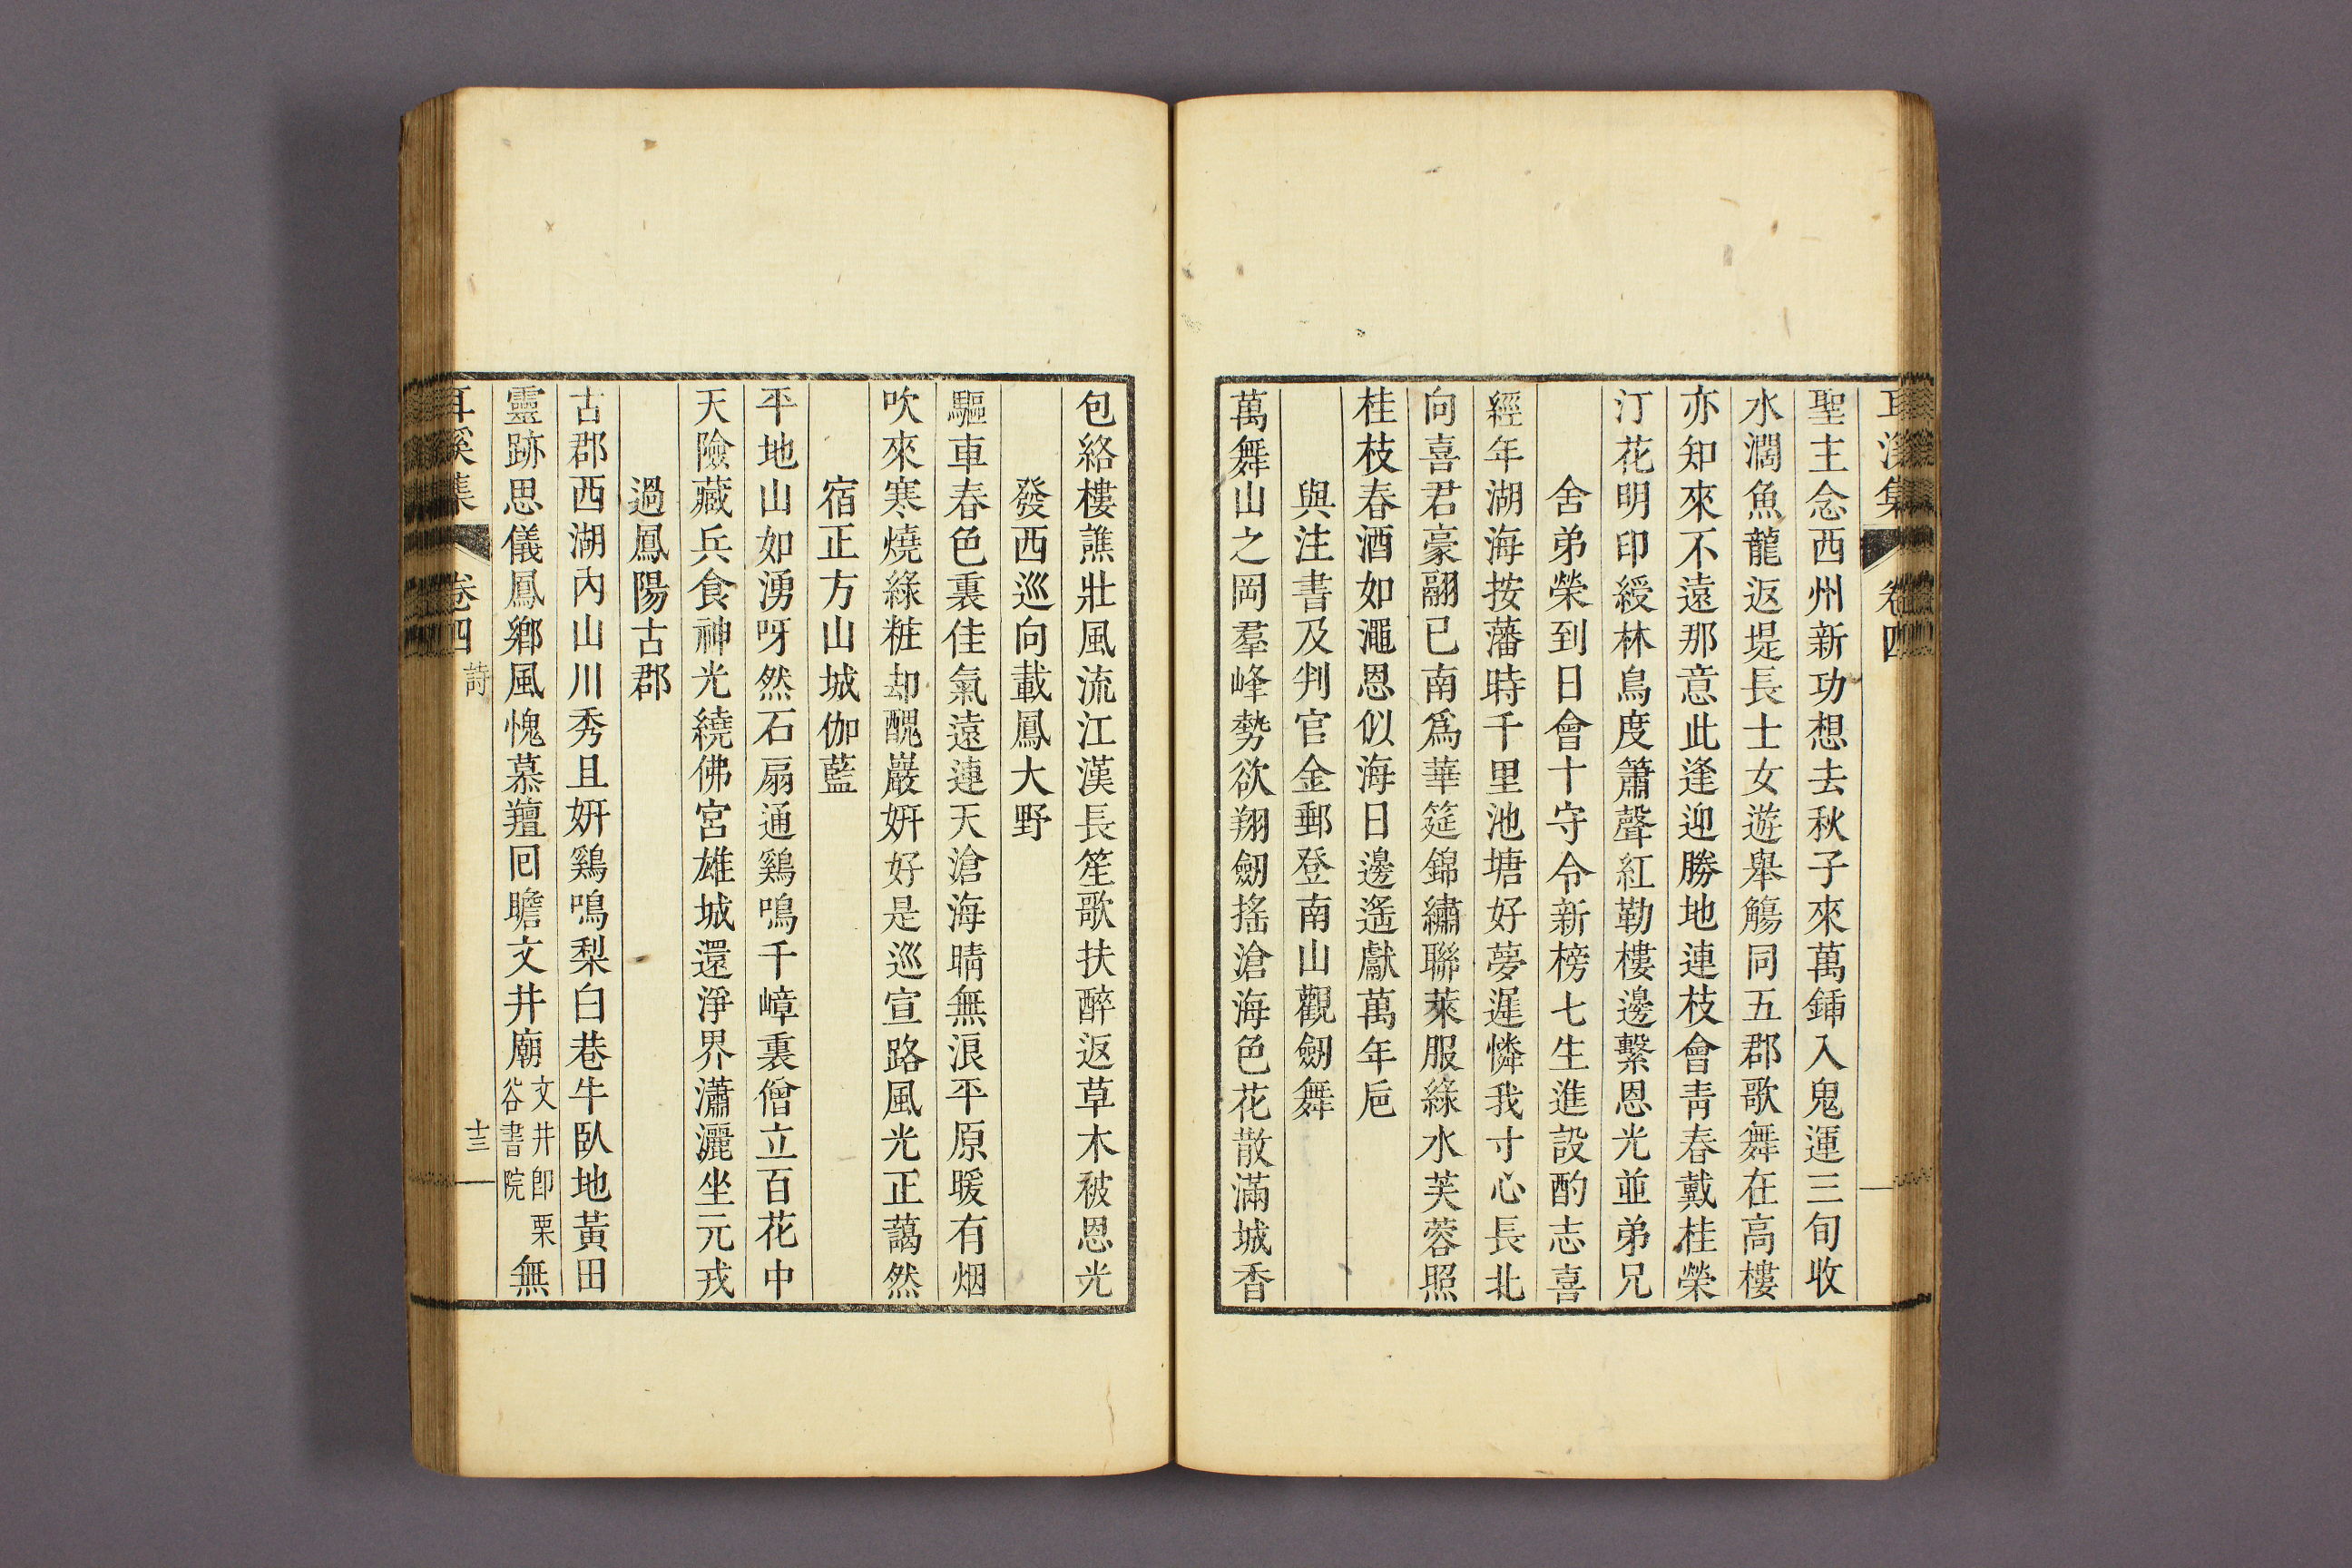 耳溪集 卷四
聖主念西州新功想去秋子來萬鍤入鬼運三旬收
水濶魚龍返堤長士女遊舉觴同五郡歌舞在高樓
亦知來不遠那意此逢迎勝地連枝會靑春戴桂榮
汀花明印綬林鳥度簫聲紅勒樓邊繫恩光並弟兄
舍弟榮到日會十守令新榜七生進設酌志喜
經年湖海按藩時千里池塘好夢遲憐我寸心長北
向喜君豪翮已南爲華筵錦繡聯萊服綠水芙蓉照
桂枝春酒如澠恩似海日邊遙獻萬年巵
與注書及判官金郵登南山觀劒舞
萬舞山之岡羣峰勢欲翔劒搖滄海色花散滿城香
包絡樓譙壯風流江漢長笙歌扶醉返草木被恩光
發西巡向載鳳大野
驅車春色裏佳氣遠連天滄海晴無浪平原暖有烟
吹來寒燒綠粧却醜巖姸好是巡宣路風光正藹然
宿正方山城伽藍
平地山如湧呀然石扇通鷄鳴千嶂裏僧立百花中
天險藏兵食神光繞佛宮雄城還淨界瀟灑坐元戎
過鳳陽古郡
古郡西湖內山川秀且姸鷄鳴梨白巷牛臥地黃田
靈跡思儀鳳鄕風愧慕羶回瞻文井廟文井卽栗谷書院無
耳溪集 卷四 詩 十三